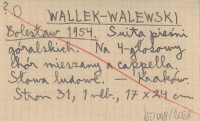 ?
O
WALLEK-WALEWSKI
Bolesław 1954. Suita pieśni
góralskich. Na 4-głosowy
chór mieszany a cappella.
Słowa ludowe. — Kraków.
Stron 31, 1 nlb., 17 x 24 cm